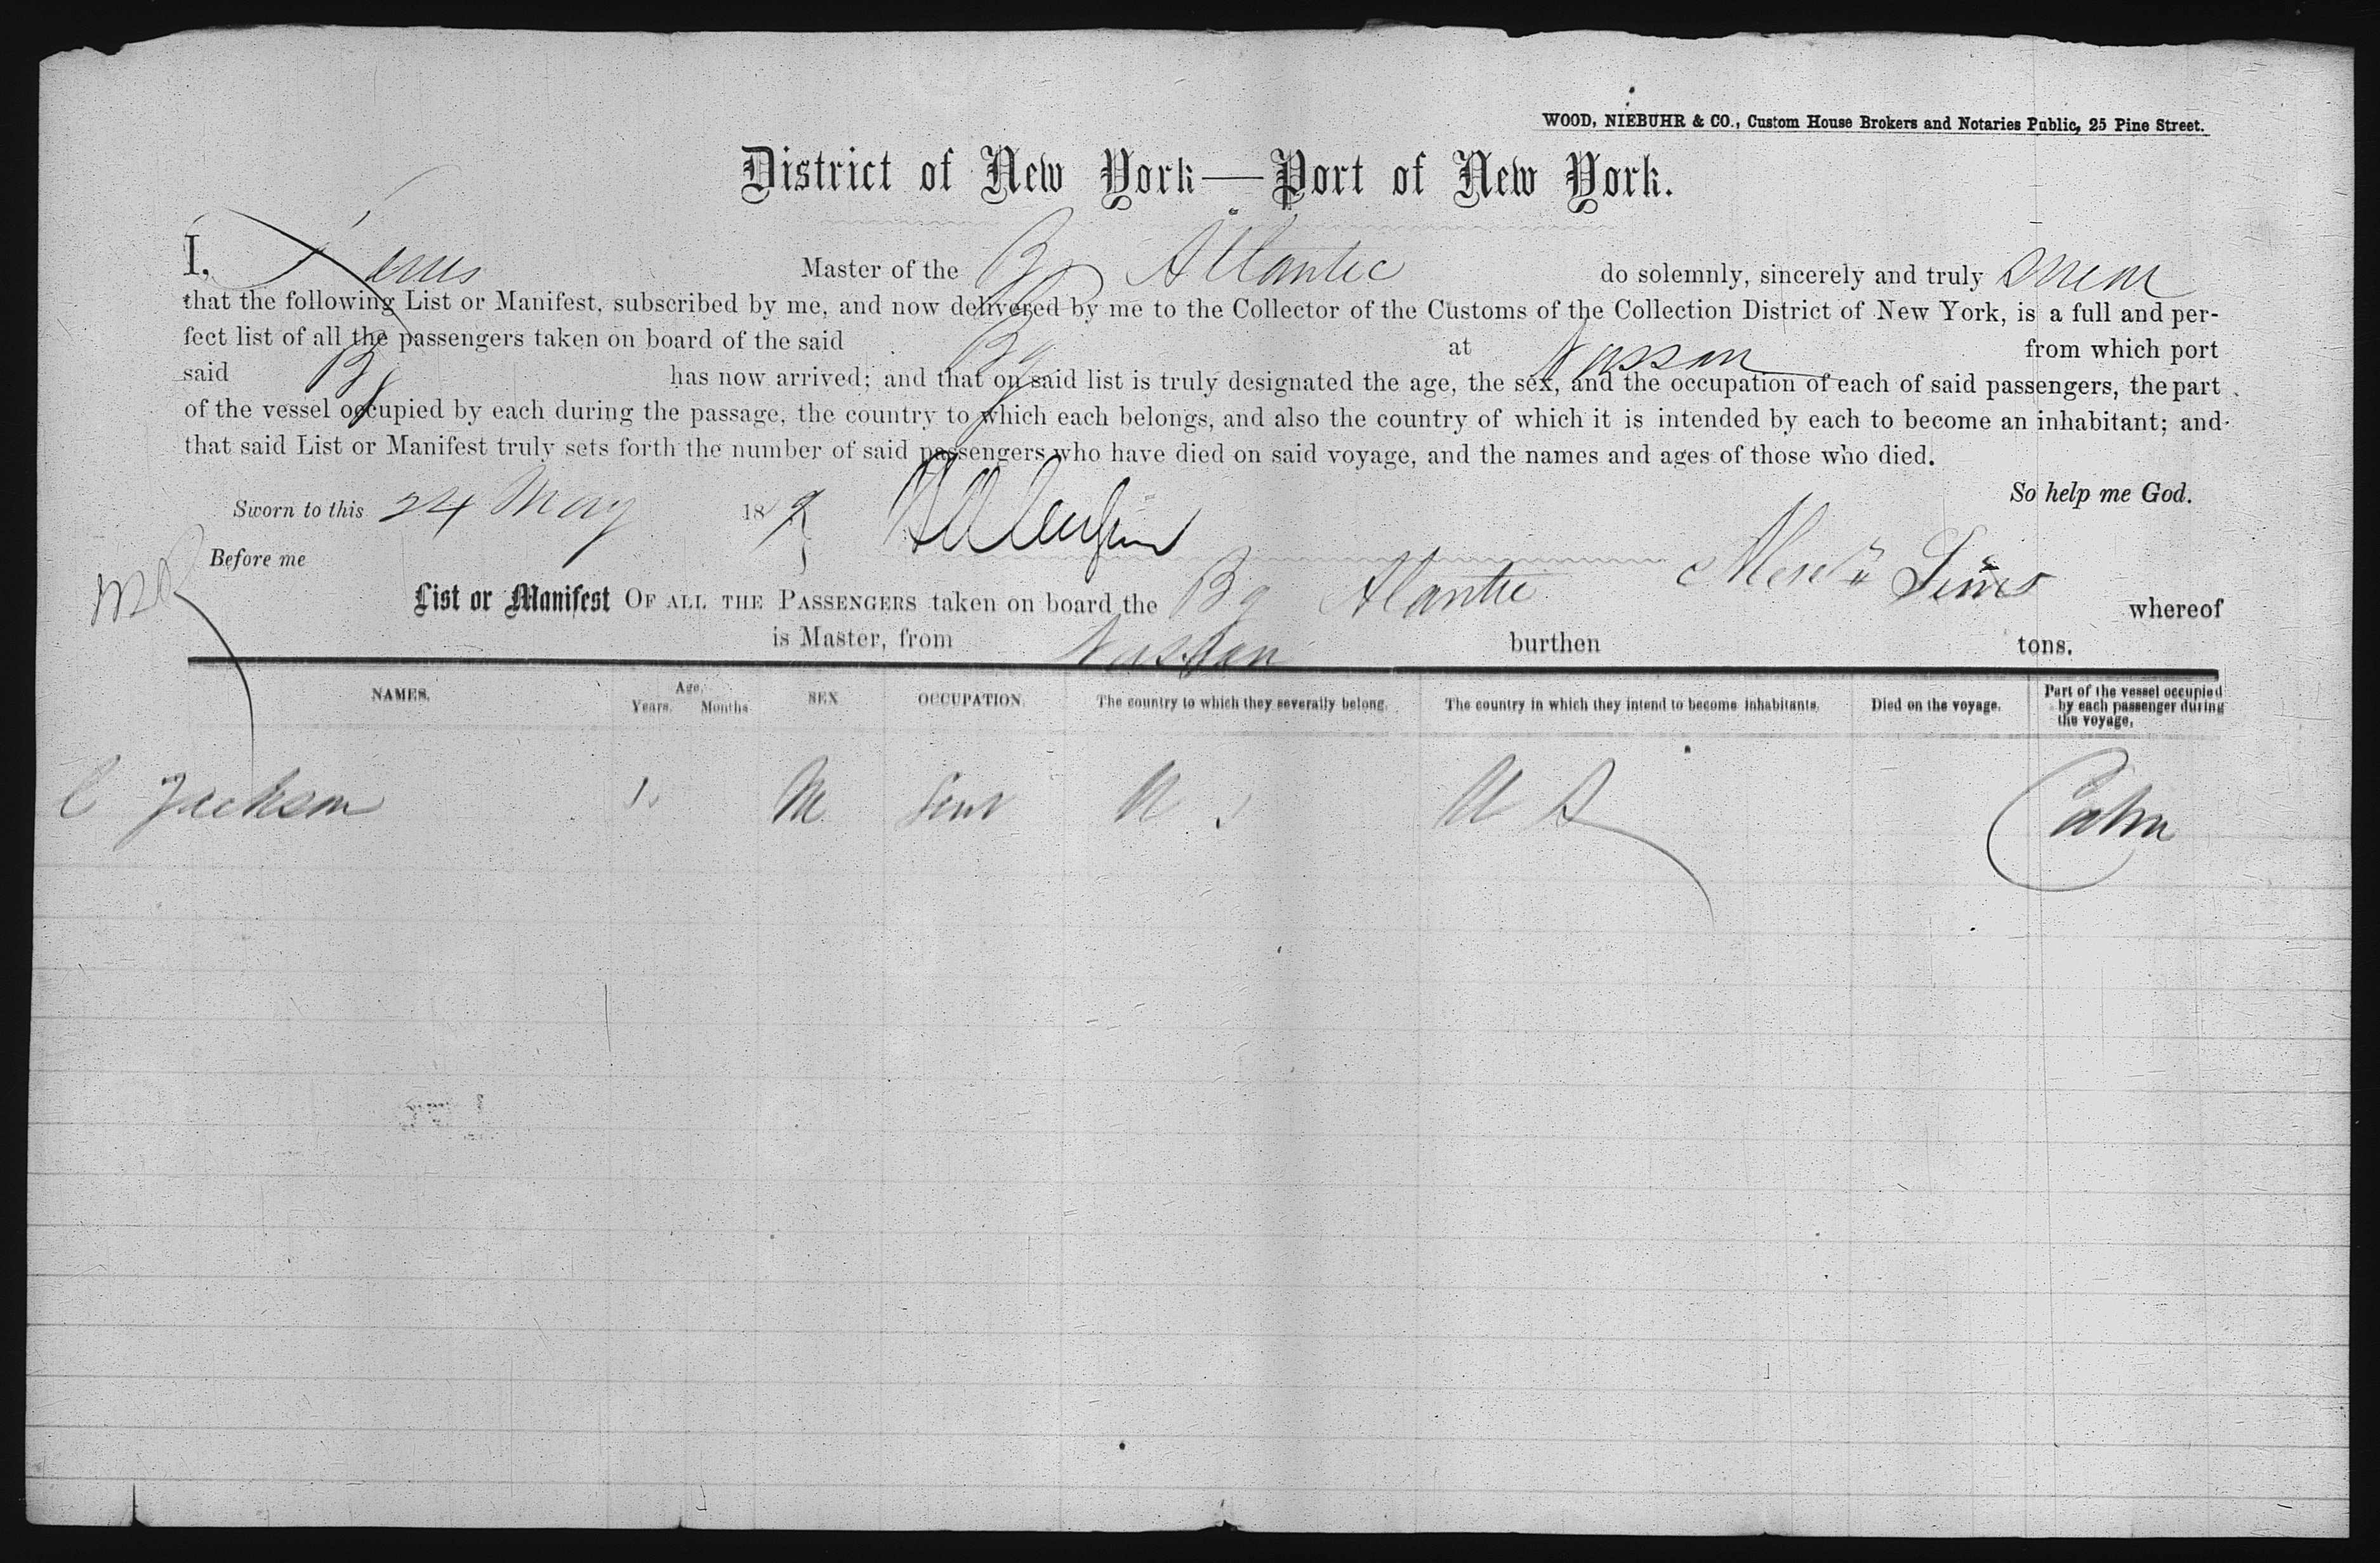 WOOD, NIEBUHR & CO., Custom House Brokers and Notaries Public, 25 Pine Street.
District of New York—Port of New York.
I, Master of the Bg Atlantic do solemnly, sincerely and truly swear
that the following List or Manifest, subscribed by me, and now delivered by me to the Collector of the Customs of the Collection District of New York, is a full and per-
fect list of all the passengers taken on board of the said Bg at Nassau from which port
said Bg has now arrived; and that on said list is truly designated the age, the sex, and the occupation of each of said passengers, the part
of the vessel occupied by each during the passage, the country to which each belongs, and also the country of which it is intended by each to become an inhabitant; and
that said List or Manifest truly sets forth the number of said passengers who have died on said voyage, and the names and ages of those who died.
So help me God.
Sworn to this 24 May 187
Before me
List or Manifest OF ALL THE PASSENGERS taken on board the Bg Atlantic whereof
is Master, from Nassau burthen tons.
NAMES. Age, Years. Months. SEX OCCUPATION. The country to which they severally belong. The country in which they intend to become inhabitants. Died on the voyage. Part of the vessel occupied by each passenger during the voyage.
C Jackson M U S U S Cabin